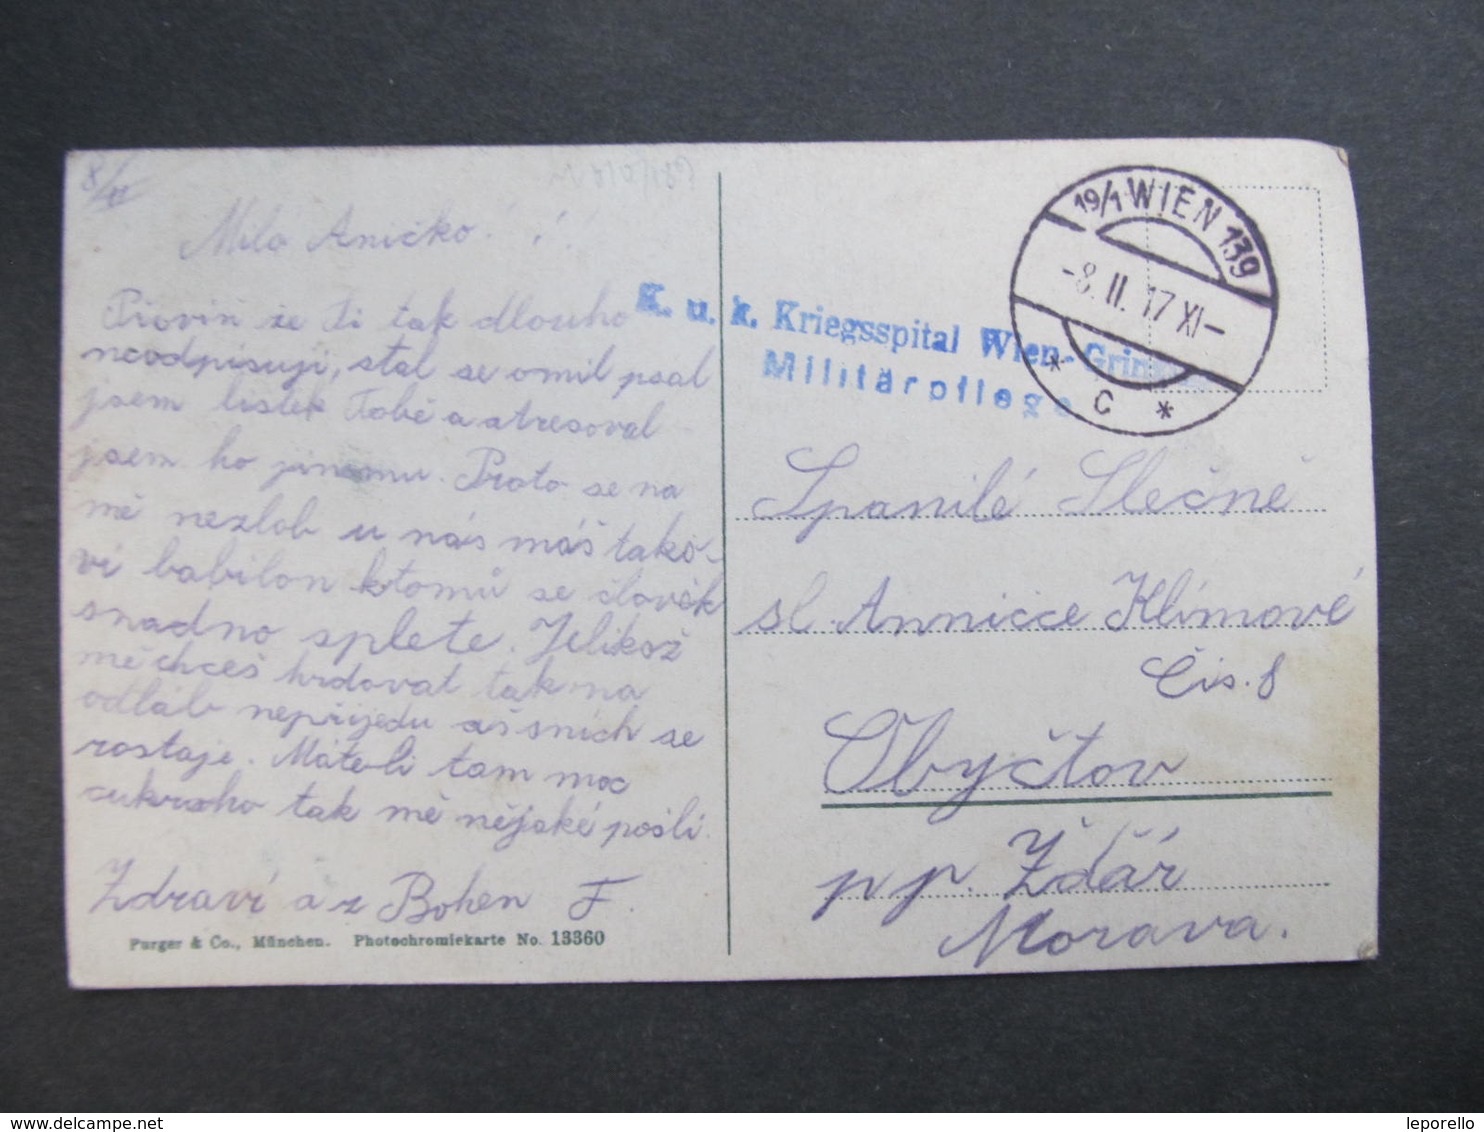 8/II
Milá Aničko! !
Promiň že Ti tak dlouho
neodpisuji, stal se omil psal
jsem lístek Tobě a atresoval
jsem ho jinému. Proto se na
mě nezlob u nás máš tako-
vi babilon ktomů se člověk
snadno splete. Jelikož
mě chceš hrdovat tak na
odláb nepřijedu až snich se
rostaje. Máte-li tam moc
cukrxho tak mě nějaké pošli.
Zdraví a z Bohen F.
Purger & Co., München. Photochromiekarte No. 13360
K. u. k. Kriegsspital Wien-Grinzing
Militärpflege
19/1 WIEN 139
-8.II.17 XI-
* C *
Spanilé Slečně
sl. Anničce Klímové
Čis. 8
Obyčtov
pp. Žďár
Morava.
delcampe.net
leporello